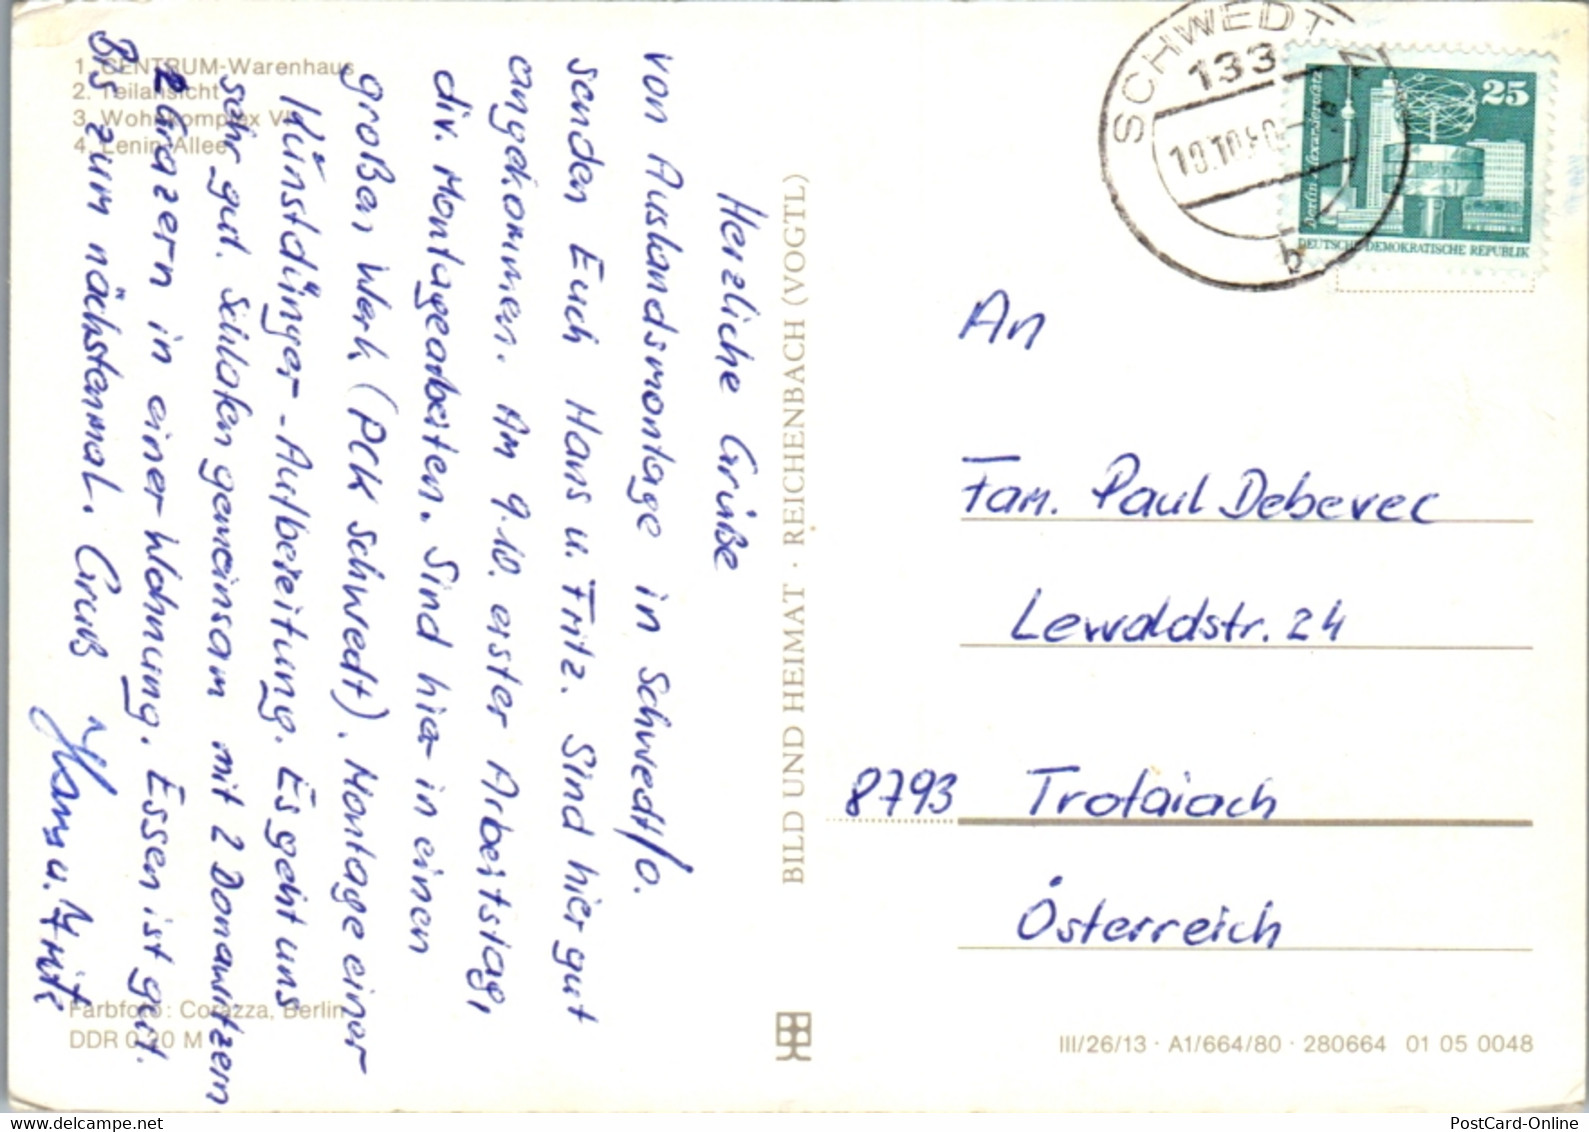 1. CENTRUM-Warenhaus
2. Teilansicht
3. Wohnkomplex VII
4. Lenin-Allee
Herzliche Grüße
von Auslandsmontage in Schwedt/O.
senden Euch Hans u. Fritz. Sind hier gut
angekommen. Am 9.10. erster Arbeitstag,
div. Montagearbeiten. Sind hier in einen
großen Werk (PCK Schwedt). Montage einer
Künstdünger-Aufbereitung. Es geht uns
sehr gut. Schlafen gemeinsam mit 2 Donawitzern
2 Grazern in einer Wohnung. Essen ist gut.
Bis zum nächstenmal. Gruß Hans u. Fritz
Farbfoto: Corazza, Berlin
DDR 0,20 M
BILD UND HEIMAT · REICHENBACH (VOGTL)
SCHWEDT
133
10.10.80
b
25
Berlin Alexanderplatz
DEUTSCHE DEMOKRATISCHE REPUBLIK
An
Fam. Paul Debevec
Lewaldstr. 24
8793 Trofaiach
Österreich
III/26/13 · A1/664/80 · 280664 01 05 0048
PostCard-Online